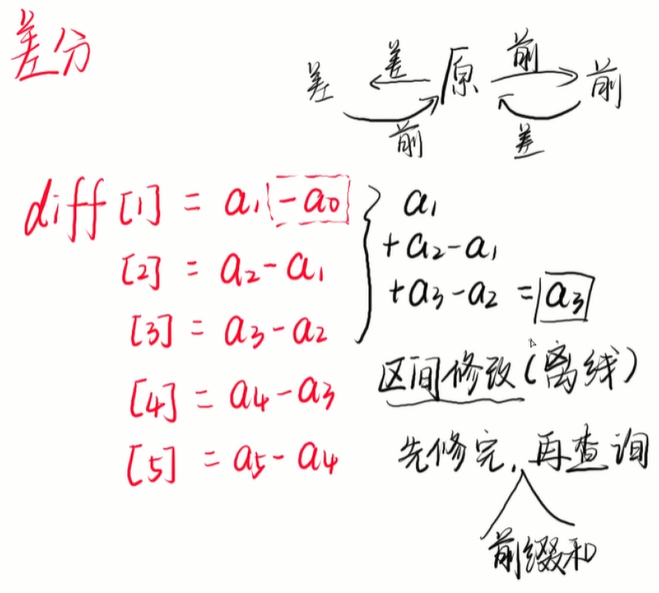 差分
差 差 原 前 前
前 差
diff[1] = a₁ -a₀
[2] = a₂-a₁
[3] = a₃-a₂
[4] = a₄-a₃
[5] = a₅-a₄
a₁
+a₂-a₁
+a₃-a₂ = a₃
区间修改(离线)
先修完,再查询
前缀和